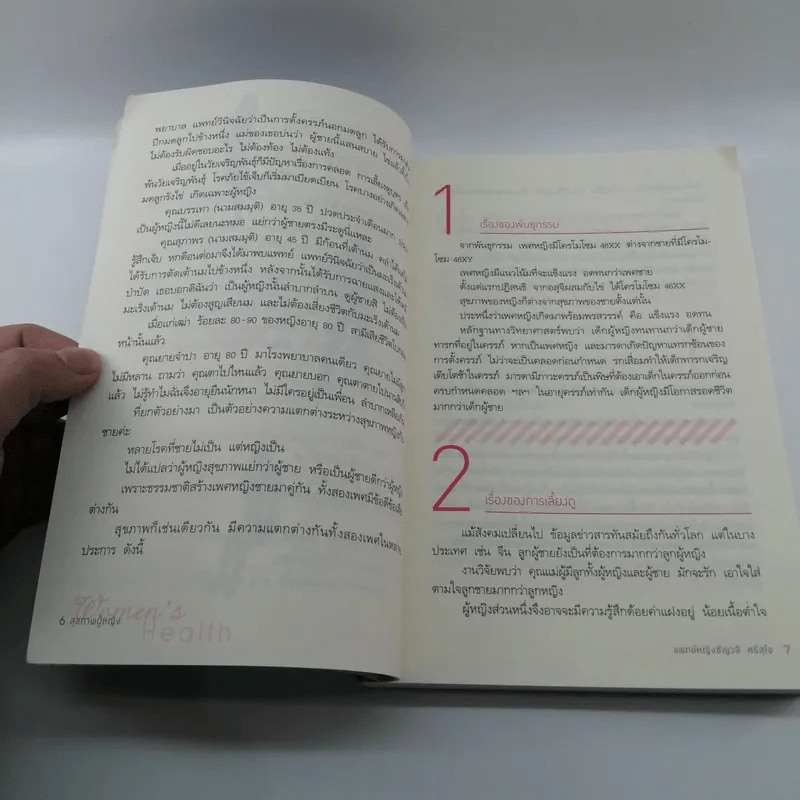 พยาบาล แพทย์วินิจฉัยว่าเป็นการตั้งครรภ์นอกมดลูก ได้รับการ
ปีกมดลูกไปข้างหนึ่ง แม่ของเธอบ่นว่า ผู้ชายนี้แสนสบาย
ไม่ต้องรับผิดชอบอะไร ไม่ต้องท้อง ไม่ต้องแท้ง
เมื่ออยู่ในวัยเจริญพันธุ์ก็มีปัญหาเรื่องการคลอด การเลี้ยงดูบุตร
พ้นวัยเจริญพันธุ์ โรคภัยไข้เจ็บก็เริ่มมาเบียดเบียน โรคบางอย่าง
มดลูกรังไข่ เกิดเฉพาะผู้หญิง
คุณบรรเทา (นามสมมุติ) อายุ 35 ปี ปวดประจำเดือนมาก
เป็นผู้หญิงนี้ไม่ดีเลยนะหมอ แย่กว่าผู้ชายตรงมีระดูนี่แหละ
คุณสุภาพร (นามสมมุติ) อายุ 45 ปี มีก้อนที่เต้านม
รู้สึกเจ็บ หกเดือนต่อมาจึงได้มาพบแพทย์ แพทย์วินิจฉัยว่าเป็นมะเร็งเต้านม
ได้รับการตัดเต้านมไปข้างหนึ่ง หลังจากนั้นได้รับการฉายแสงและ
บำบัด เธอบอกดิฉันว่า เป็นผู้หญิงนั้นลำบากลำบน ดูผู้ชายสิ ไม่ต้อง
มะเร็งเต้านม ไม่ต้องสูญเสียนม และไม่ต้องเสี่ยงชีวิตกับมะเร็งเต้านม
เมื่อแก่เฒ่า ร้อยละ 80-90 ของหญิงอายุ 80 ปี สามีเสียชีวิตไป
หน้านั้นแล้ว
คุณยายจำปา อายุ 80 ปี มาโรงพยาบาลคนเดียว คุณยายไม่มี
ไม่มีหลาน ถามว่า คุณตาไปไหนแล้ว คุณยายบอก คุณตาตายไปนาน
แล้ว ไม่รู้ทำไมฉันจึงอายุยืนนักหนา ไม่มีใครอยู่เป็นเพื่อน ลำบากเหลือ
ที่ยกตัวอย่างมา เป็นตัวอย่างความแตกต่างระหว่างสุขภาพหญิง
ชายค่ะ
หลายโรคที่ชายไม่เป็น แต่หญิงเป็น
ไม่ได้แปลว่าผู้หญิงสุขภาพแย่กว่าผู้ชาย หรือเป็นผู้ชายดีกว่าผู้หญิง
เพราะธรรมชาติสร้างเพศหญิงชายมาคู่กัน ทั้งสองเพศมีข้อดีข้อ
ต่างกัน
สุขภาพก็เช่นเดียวกัน มีความแตกต่างกันทั้งสองเพศในหลาย
ประการ ดังนี้
Women's
Health
6 สุขภาพผู้หญิง
1
เรื่องของพันธุกรรม
จากพันธุกรรม เพศหญิงมีโครโมโซม 46XX ต่างจากชายที่มีโครโม-
โซม 46XY
เพศหญิงมีแนวโน้มที่จะแข็งแรง อดทนกว่าเพศชาย
ตั้งแต่แรกปฏิสนธิ จากอสุจิผสมกับไข่ ได้โครโมโซม 46XX
สุขภาพของหญิงก็ต่างจากสุขภาพของชายตั้งแต่นั้น
ประหนึ่งว่าเพศหญิงเกิดมาพร้อมพรสวรรค์ คือ แข็งแรง อดทน
หลักฐานทางวิทยาศาสตร์พบว่า เด็กผู้หญิงทนทานกว่าเด็กผู้ชาย
ทารกที่อยู่ในครรภ์ หากเป็นเพศหญิง และมารดาเกิดปัญหาแทรกซ้อนของ
การตั้งครรภ์ ไม่ว่าจะเป็นคลอดก่อนกำหนด รกเสื่อมทำให้เด็กทารกเจริญ
เติบโตช้าในครรภ์ มารดามีภาวะครรภ์เป็นพิษที่ต้องเอาเด็กในครรภ์ออกก่อน
ครบกำหนดคลอด ฯลฯ ในอายุครรภ์เท่ากัน เด็กผู้หญิงมีโอกาสรอดชีวิต
มากกว่าเด็กผู้ชาย
2
เรื่องของการเลี้ยงดู
แม้สังคมเปลี่ยนไป ข้อมูลข่าวสารทันสมัยถึงกันทั่วโลก แต่ในบาง
ประเทศ เช่น จีน ลูกผู้ชายยังเป็นที่ต้องการมากกว่าลูกผู้หญิง
งานวิจัยพบว่า คุณแม่ผู้มีลูกทั้งผู้หญิงและผู้ชาย มักจะรัก เอาใจใส่
ตามใจลูกชายมากกว่าลูกหญิง
ผู้หญิงส่วนหนึ่งจึงอาจจะมีความรู้สึกด้อยค่าแฝงอยู่ น้อยเนื้อต่ำใจ
แพทย์หญิงชัญวลี ศรีสุโข 7